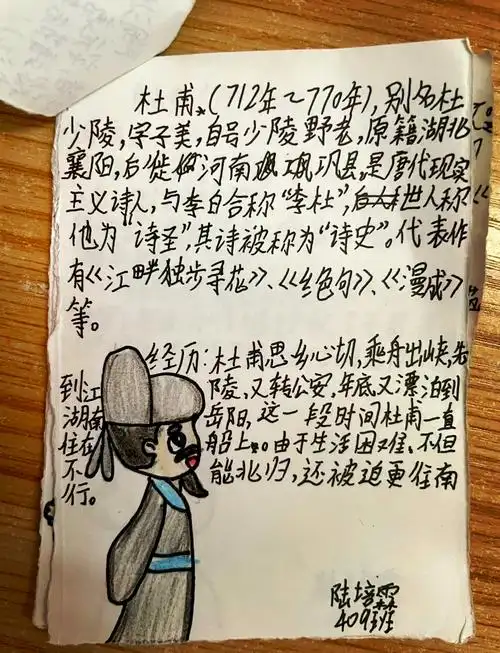 杜甫。(712年～770年),别名杜
少陵,字子美,自号少陵野老,原籍湖北
襄阳,后徙河南巩县,是唐代现实
主义诗人,与李白合称“李杜”,世人称
他为“诗圣”,其诗被称为“诗史”。代表作
有《江畔独步寻花》、《绝句》、《漫成》
等。
经历:杜甫思乡心切,乘舟出峡,先
到江陵,又转公安,年底又漂泊到
湖南岳阳,这一段时间杜甫一直
住在船上。由于生活困难、不但
不能北归,还被迫更往南
行。
陆培霖
409班